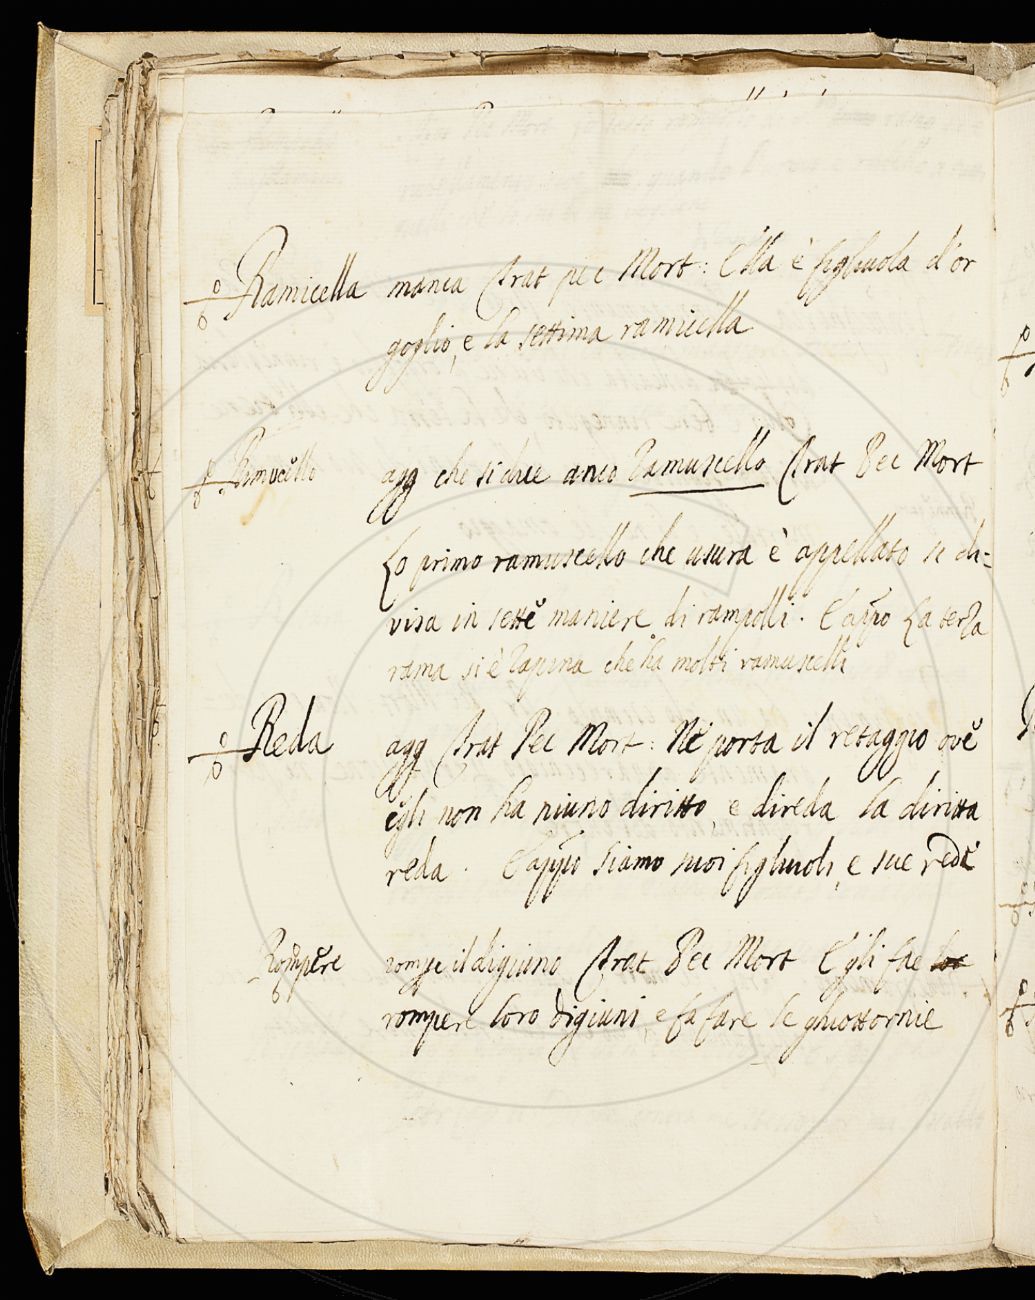 Ramicella manca Trat pec Mort: Ella è figliuola d'or
goglio, e la settima ramicella
Ramucello agg che si dice anco Ramuscello Trat Pec Mort
Lo primo ramuscello che usura è appellato si di=
visa in sette maniere di rampolli. E appo La terza
rama si è rapina che ha molti ramuscelli
Reda agg Trat Pec Mort: Ne porta il retaggio ove
egli non ha niuno diritto, e direda la diritta
reda. E appo siamo suoi figliuoli, e sue rede
Rompere rompe il digiuno Trat Pec Mort Egli fae
rompere loro digiuni, e fa fare le ghiottornie